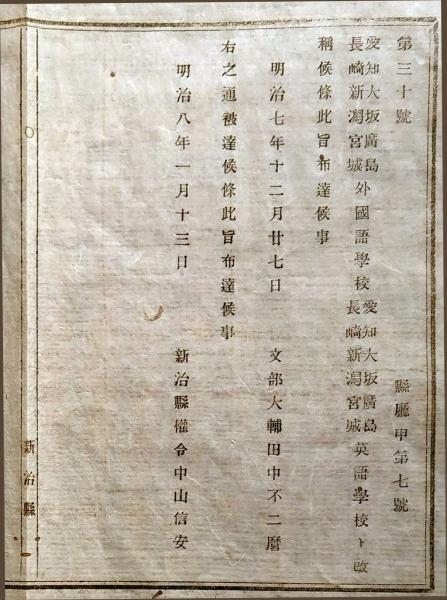 第三十號　縣廳甲第七號
愛知大坂廣島
長崎新潟宮城外國語學校愛知大坂廣島
長崎新潟宮城英語學校ト改
稱候條此旨布達候事
明治七年十二月廿七日　文部大輔田中不二麿
右之通被達候條此旨布達候事
明治八年一月十三日　新治縣權令中山信安
新治縣